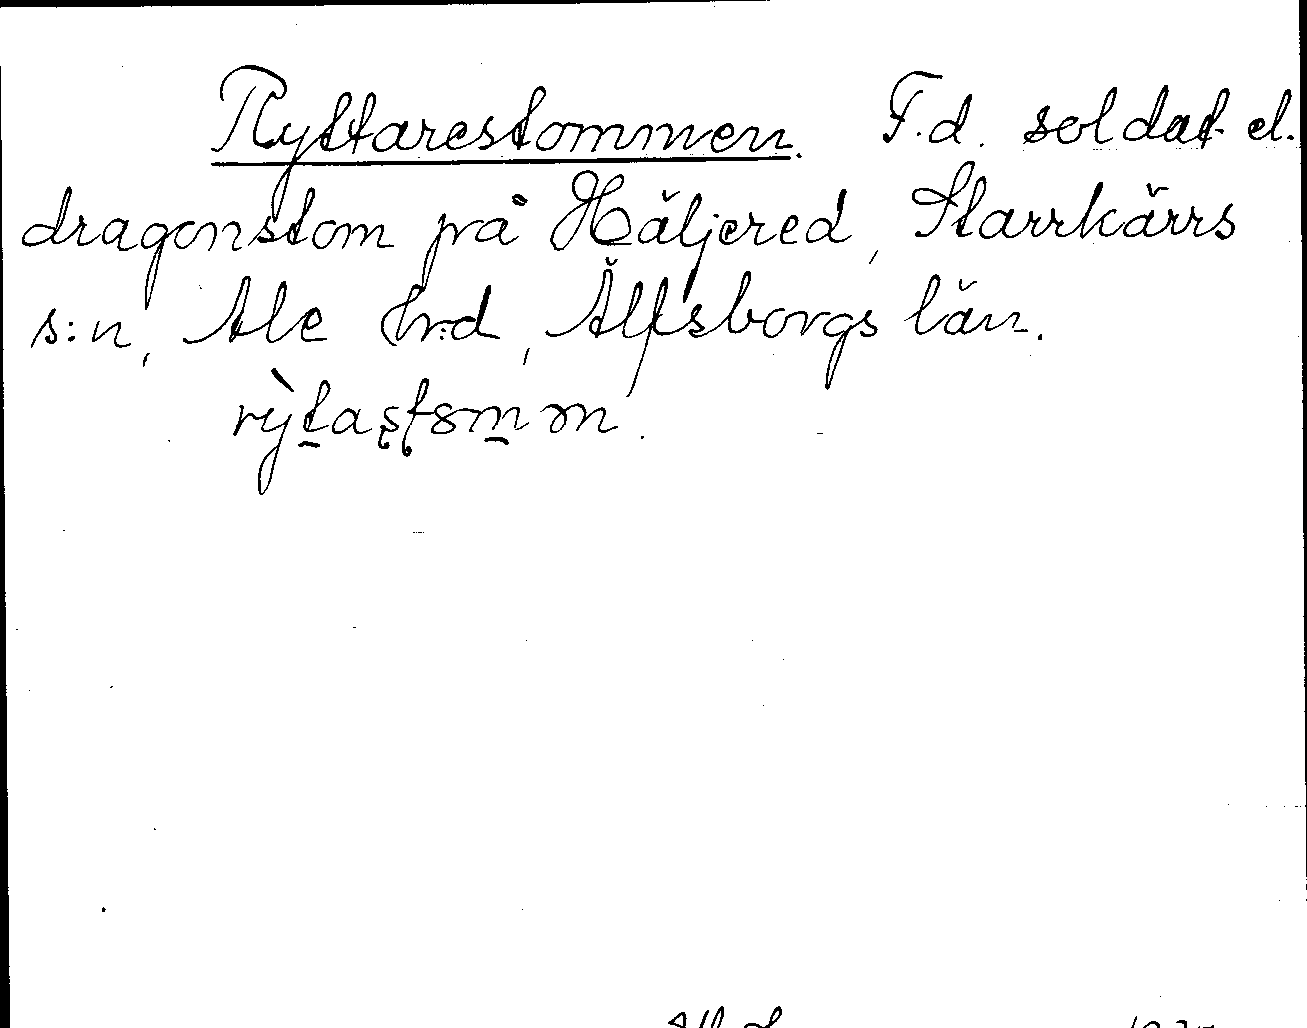 Ryttarestommen. F.d. soldat- el.
dragonstom på Häljered, Starrkärrs
s:n, Ale hrd, Älfsborgs län.